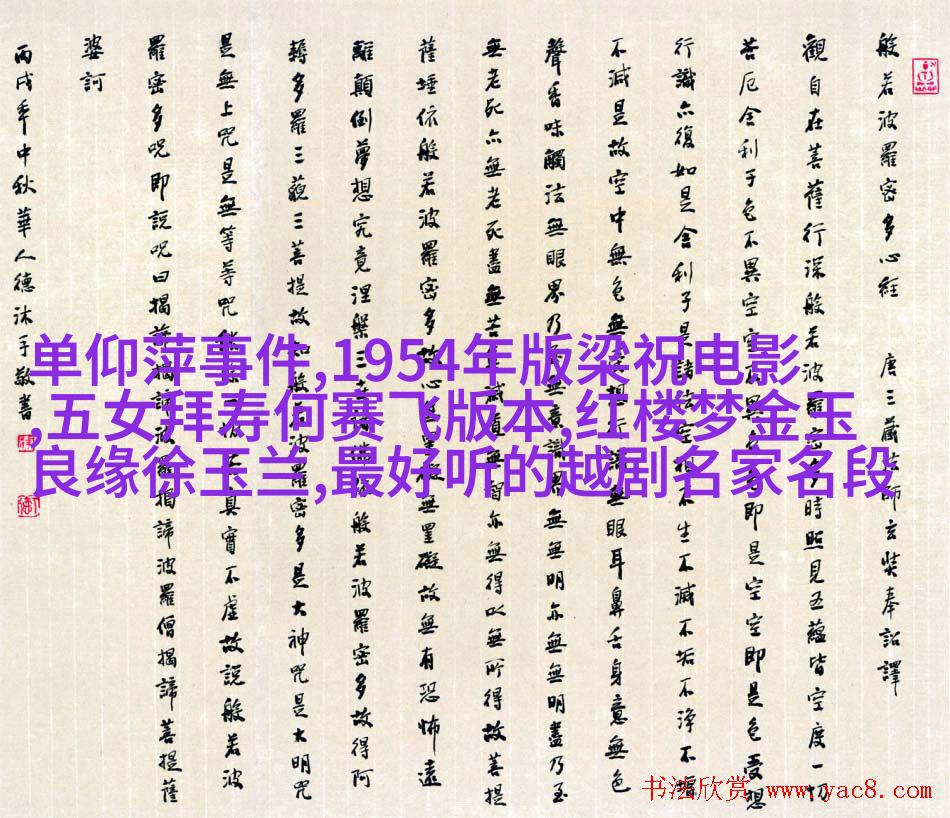 般若波羅密多心經 唐三藏法師玄奘奉詔譯
觀自在菩薩行深般若波羅密多時照見五蘊皆空度一切
苦厄舍利子色不異空空不異色即是空空即是色受想
行識亦復如是舍利子是諸法空相不生不滅不垢不淨不增
不減是故空中無色無受想行識無眼耳鼻舌身意無色
聲香味觸法無眼界乃至無意識界無無明亦無無明盡乃至
無老死亦無老死盡無苦集滅道無智亦無得以無所得故菩提
薩埵依般若波羅密多故心無罣礙故無有恐怖遠
離顛倒夢想究竟涅槃三世諸佛依般若波羅密多故得阿
耨多羅三藐三菩提故知般若波羅密多是大神咒是大明咒
是無上咒是無等等咒能除一切苦真實不虛故說般若波
羅密多咒即說咒曰揭諦揭諦波羅揭諦波羅僧揭諦菩提薩
婆訶
丙戌年中秋華人德沐手敬書
单仰萍事件,1954年版梁祝电影
,五女拜寿何赛飞版本,红楼梦金玉
良缘徐玉兰,最好听的越剧名家名段
书法欣赏 www.yac8.com